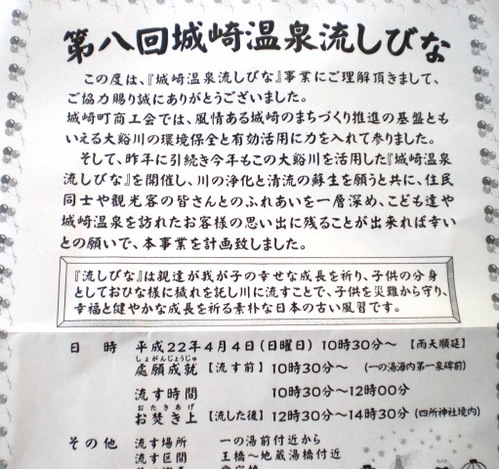 第八回城崎温泉流しびな
この度は、『城崎温泉流しびな』事業にご理解頂きまして、
ご協力賜り誠にありがとうございました。
城崎町商工会では、風情ある城崎のまちづくり推進の基盤とも
いえる大谿川の環境保全と有効活用に力を入れて参りました。
そして、昨年に引続き今年もこの大谿川を活用した『城崎温泉
流しびな』を開催し、川の浄化と清流の蘇生を願うと共に、住民
同士や観光客の皆さんとのふれあいを一層深め、こども達や
城崎温泉を訪れたお客様の思い出に残ることが出来れば幸い
との願いで、本事業を計画致しました。
『流しびな』は親達が我が子の幸せな成長を祈り、子供の分身
としておひな様に穢れを託し川に流すことで、子供を災難から守り、
幸福と健やかな成長を祈る素朴な日本の古い風習です。
日 時 平成22年4月4日(日曜日) 10時30分~ 【雨天順延】
しょがんじょうじゅ
處願成就 【流す前】 10時30分~ (一の湯海内第一泉碑前)
流す時間 10時30分~12時00分
おたきあげ
お焚き上 【流した後】 12時30分~14時30分 (四所神社境内)
その他 流す場所 一の湯前付近から
流す区間 王橋~地蔵湯橋付近